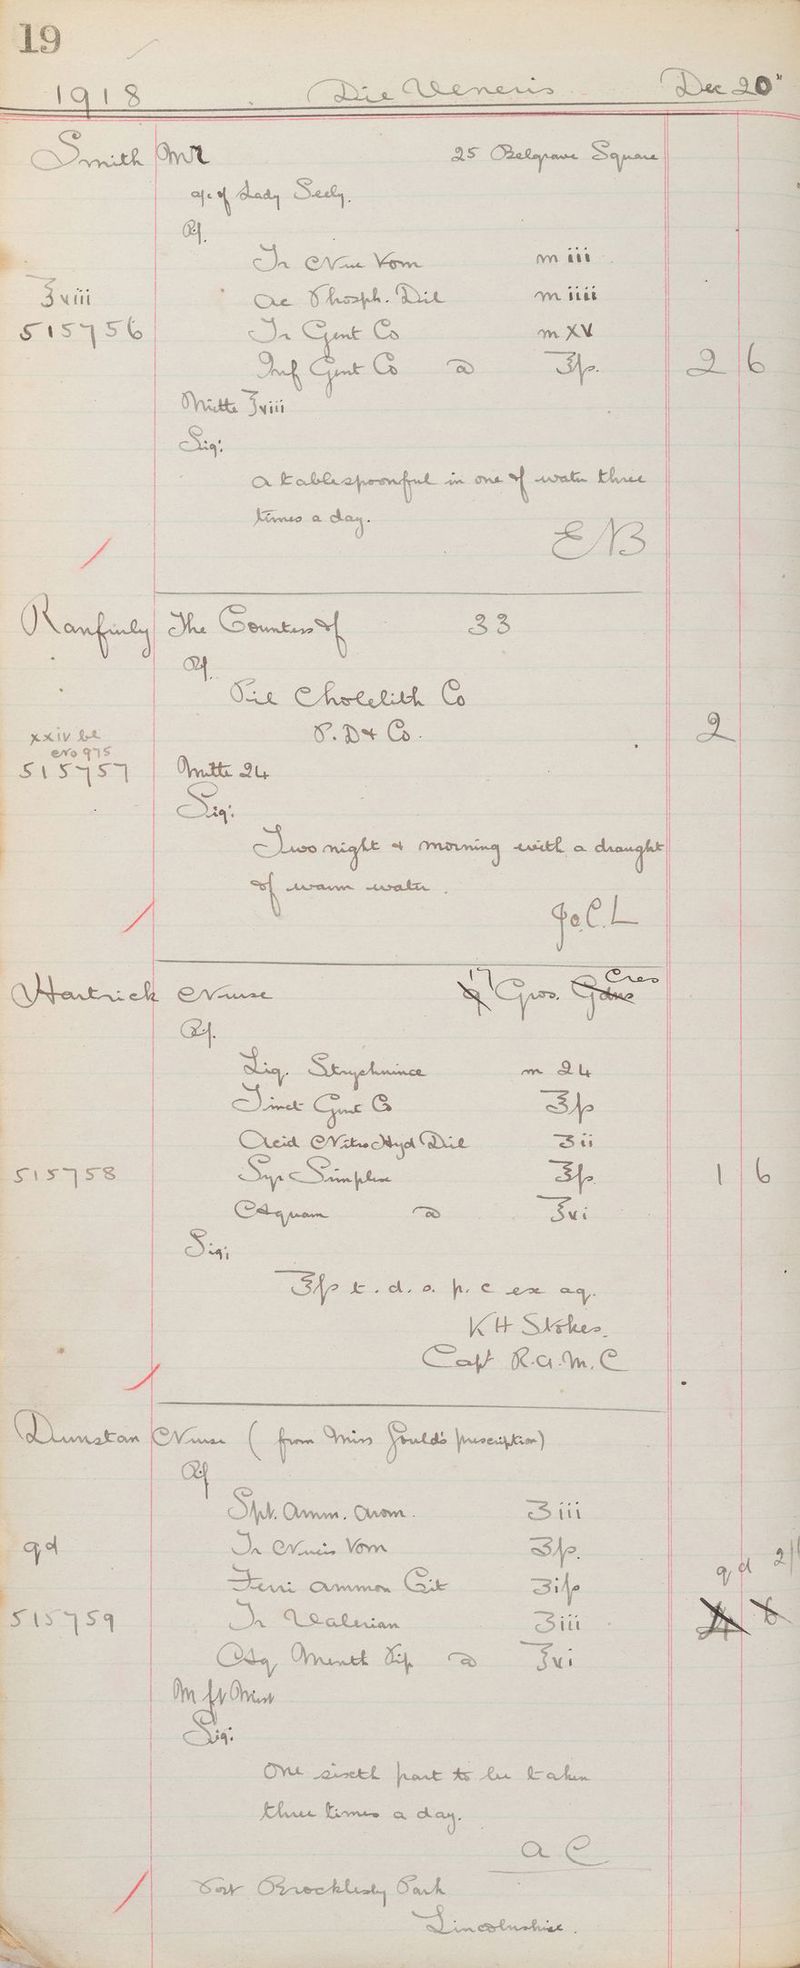 19
1918 Die Veneris Dec 20"
Smith Mr 25 Belgrave Square
a/c of Lady Seely.
Rx.
Tr Nuc Vom m iii
℥viii Ac Phosph. Dil m iiii
515756 Tr Gent Co m XV
Inf Gent Co a ℥ß. 2 6
Mitte ℥viii
Sig:
a tablespoonful in one of water three
times a day.
ENB
Ranfurly The Countess of 33
Rx.
Pil Cholelith Co
xxiv bt P. D & Co. 2
975
515757 Mitte 24
Sig:
Two night & morning with a draught
of warm water.
C. L
Hartrick Nurse 9 17 Gros. Gdns Cres
Rx.
Liq. Strychninae m 24
Tinct Gent Co ℥ß
Acid Nitro Hyd Dil ʒii
515758 Syr Simplex ℥ß 1 6
Aquam a ℥vi
Sig:
℥ß t. d. s. p. c ex aq.
K H Stokes.
Capt R.A.M.C
Dunstan Nurse (from Miss Gould's prescription)
Rx
Spt. Amm. Arom. ʒiii
qd Tr Nucis Vom ʒß. qd
Ferri Ammon Cit ʒiß
515759 Tr Valerian ʒiii 4 6
Aq Menth Pip a ℥vi
M ft Mist
Sig:
One sixth part to be taken
three times a day.
A C
Post Brocklesby Park
Lincolnshire.